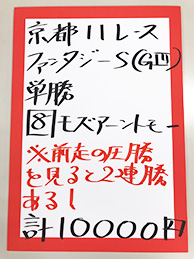 京都11レース
ファンタジーS(GⅢ)
単勝
8モズアーントモー
※前走の圧勝
を見ると2連勝
あるし
計10000円